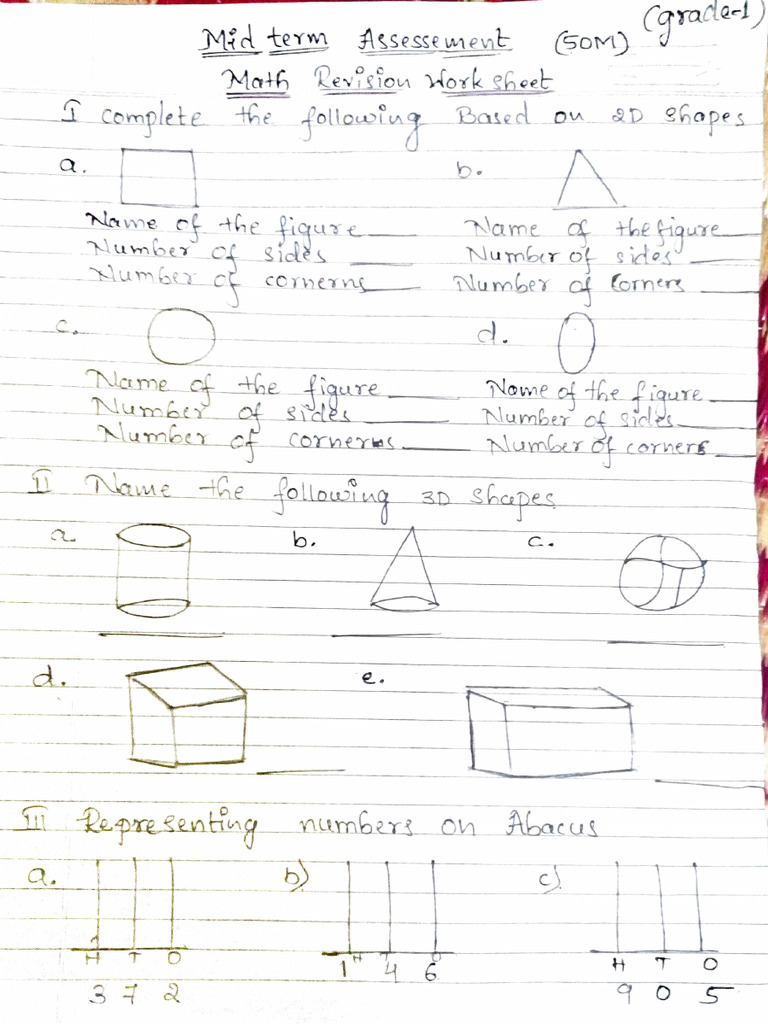 (grade-1)
Mid term Assessement (50M)
Math Revision Work sheet
I complete the following Based on 2D shapes
a. b.
Name of the figure Name of the figure
Number of sides Number of sides
Number of cornerns Number of Corners
c. d.
Name of the figure Name of the figure
Number of sides Number of sides
Number of corners Number of corners
II Name the following 3D shapes
a b. c.
d. e.
III Representing numbers on Abacus
a. b) c)
H T O H T O H T O
3 7 2 1 4 6 9 0 5